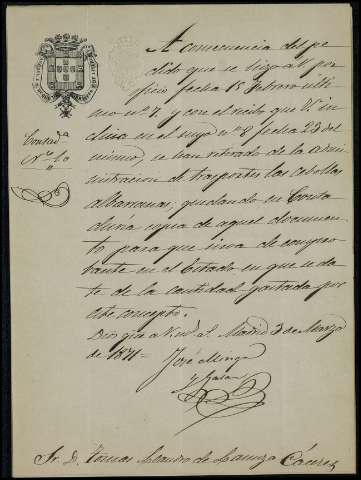 A consecuencia del pe
dido que se hizo a V. por
oficio fecha 15 Febrero últi
mo nº 7, y con el recibo que V. in
cluia en el suyo nº 8 fecha 23 del
mismo, se han retirado de la admi
nistracion de trasportes las cebollas
albarranas; quedando en Conta
duria copia de aquel documen
to para que sirva de compro
bante en el Estado en que se da
te de la cantidad gastada por
este concepto.
Contadª
Nº 10
Dios gue a V. mˢ aˢ Madrid 3 de Marzo
de 1871=
José
y Galan
Sr. D. Tomas Leandro de Cáceres